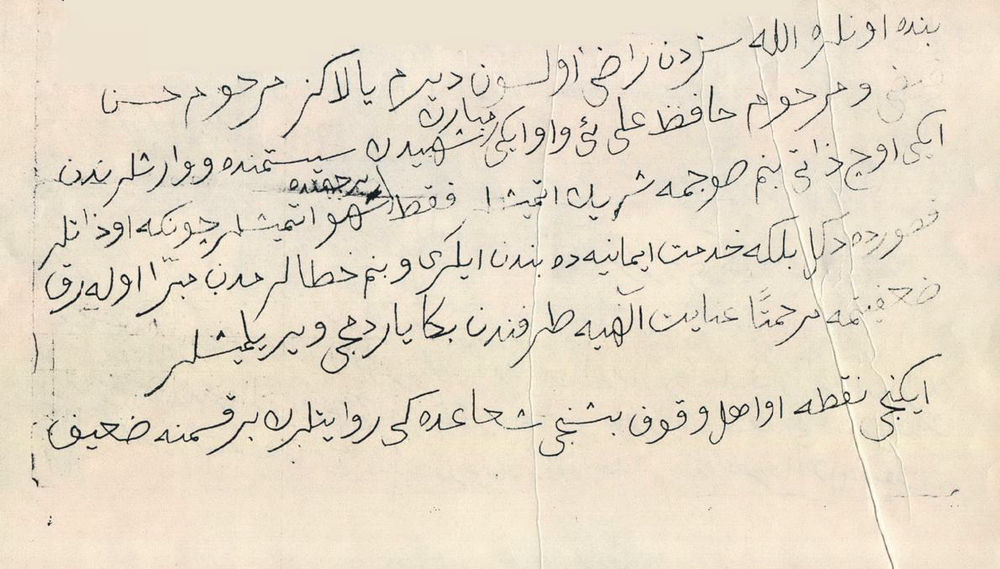 بنده اونلره الله سزدن راضی اولسون دیرم یالاکز مرحوم حسن
فیضی و مرحوم حافظ علی نئ و او ایکی مبارک شهیدک سیستمنده و وارثلرندن
ایکی اوچ ذاتی بنم صوچمه شریک اتمیشلر فقط بر جهتده سهو اتمیشلر چونکه او ذاتلر
قصورده دگل بلکه خدمت ایمانیه ده بندن ایلری و بنم خطالرمدن مبرّا اوله رق
ضعفیتمه مرحمتًا عنایت الٓهیه طرفندن بکا یاردمجی ویریلمیشلر
ایکنجی نقطه او اهل وقوف بشنجی شعاعده کی روایتلرک بر قسمنه ضعیف